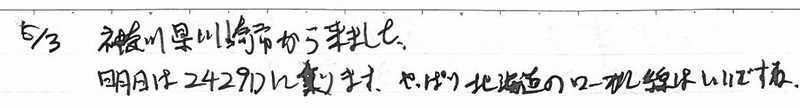 5/3 神奈川県川崎市から来ました。
明日は2429Dに乗ります。やっぱり北海道のローカル線はいいですね。